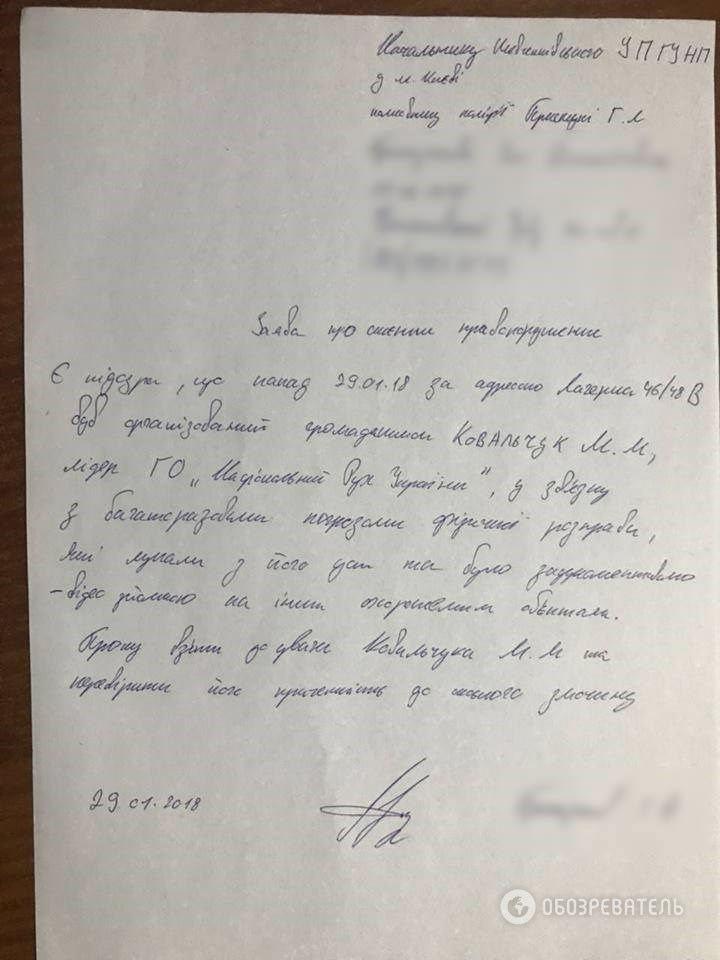 Начальнику Шевченківського УП ГУНП
у м. Києві
полковнику поліції Г.Л
Заява про скоєння правопорушення
Є підозра, що напад 29.01.18 за адресою Багерна 46/48 В
був організований громадянином КОВАЛЬЧУК М.М,
лідер ГО „Національний Рух України", у звязку
з багаторазовими погрозами фізичної розправи,
які лунали з його уст та було задокументовано
-відео зйомкою на інших охоронних обєктах.
Прошу взяти до уваги Ковальчука М.М та
перевірити його причетність до скоєного злочину
29.01.2018
ОБОЗРЕВАТЕЛЬ